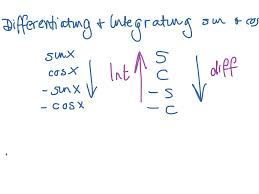 Differentiating & Integrating sin & cos
sinx
cosx
-sinx
-cosx
Int
S
C
-S
-C
diff